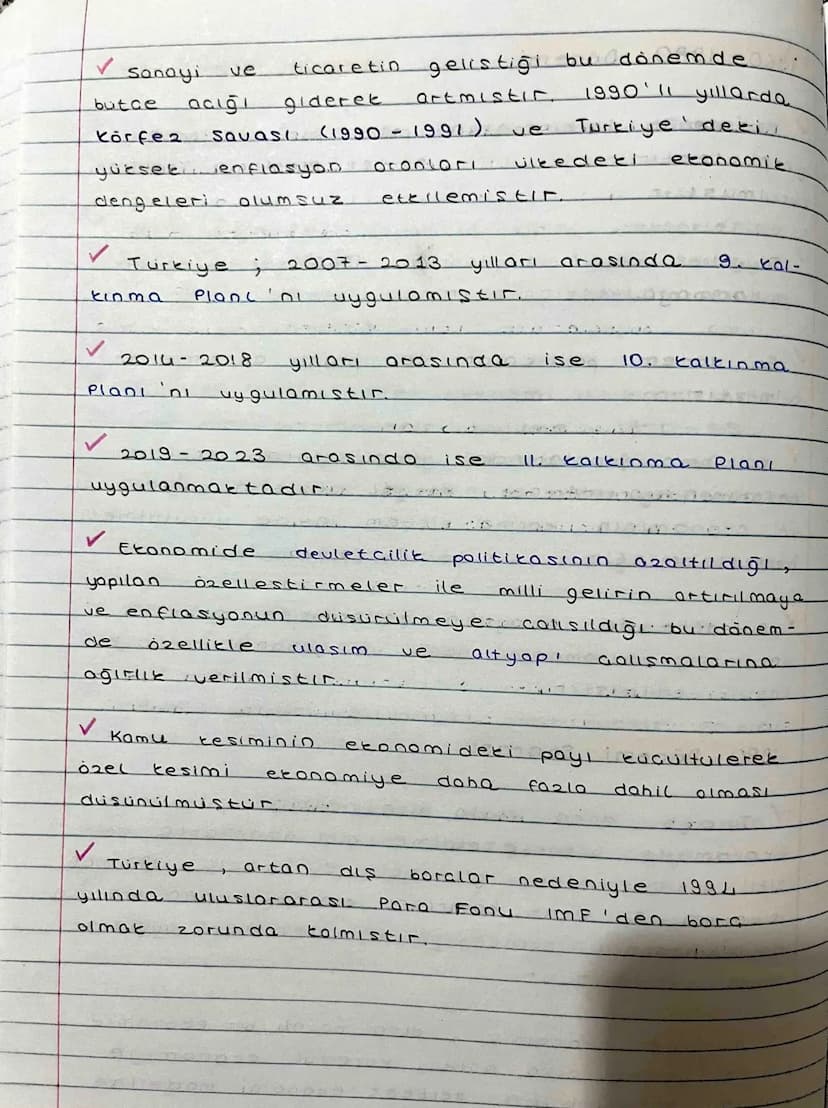 ✓ Sanayi ve ticaretin geliştiği bu dönemde
bütçe açığı giderek artmıştır. 1990'lı yıllarda
Körfez Savaşı (1990-1991) ve Türkiye'deki
yüksek enflasyon oranları ülkedeki ekonomik
dengeleri olumsuz etkilemiştir.
✓ Türkiye ; 2007-2013 yılları arasında 9. Kal-
kınma Planı'nı uygulamıştır.
✓ 2014-2018 yılları arasında ise 10. Kalkınma
Planı'nı uygulamıştır.
✓ 2019-2023 arasında ise 11. Kalkınma Planı
uygulanmaktadır.
✓ Ekonomide devletçilik politikasının azaltıldığı,
yapılan özelleştirmeler ile milli gelirin artırılmaya
ve enflasyonun düşürülmeye çalışıldığı bu dönem-
de özellikle ulaşım ve altyapı çalışmalarına
ağırlık verilmiştir.
✓ Kamu kesiminin ekonomideki payı küçültülerek
özel kesimi ekonomiye daha fazla dahil olması
düşünülmüştür.
✓ Türkiye, artan dış borçlar nedeniyle 1994
yılında uluslararası Para Fonu IMF'den borç
almak zorunda kalmıştır.